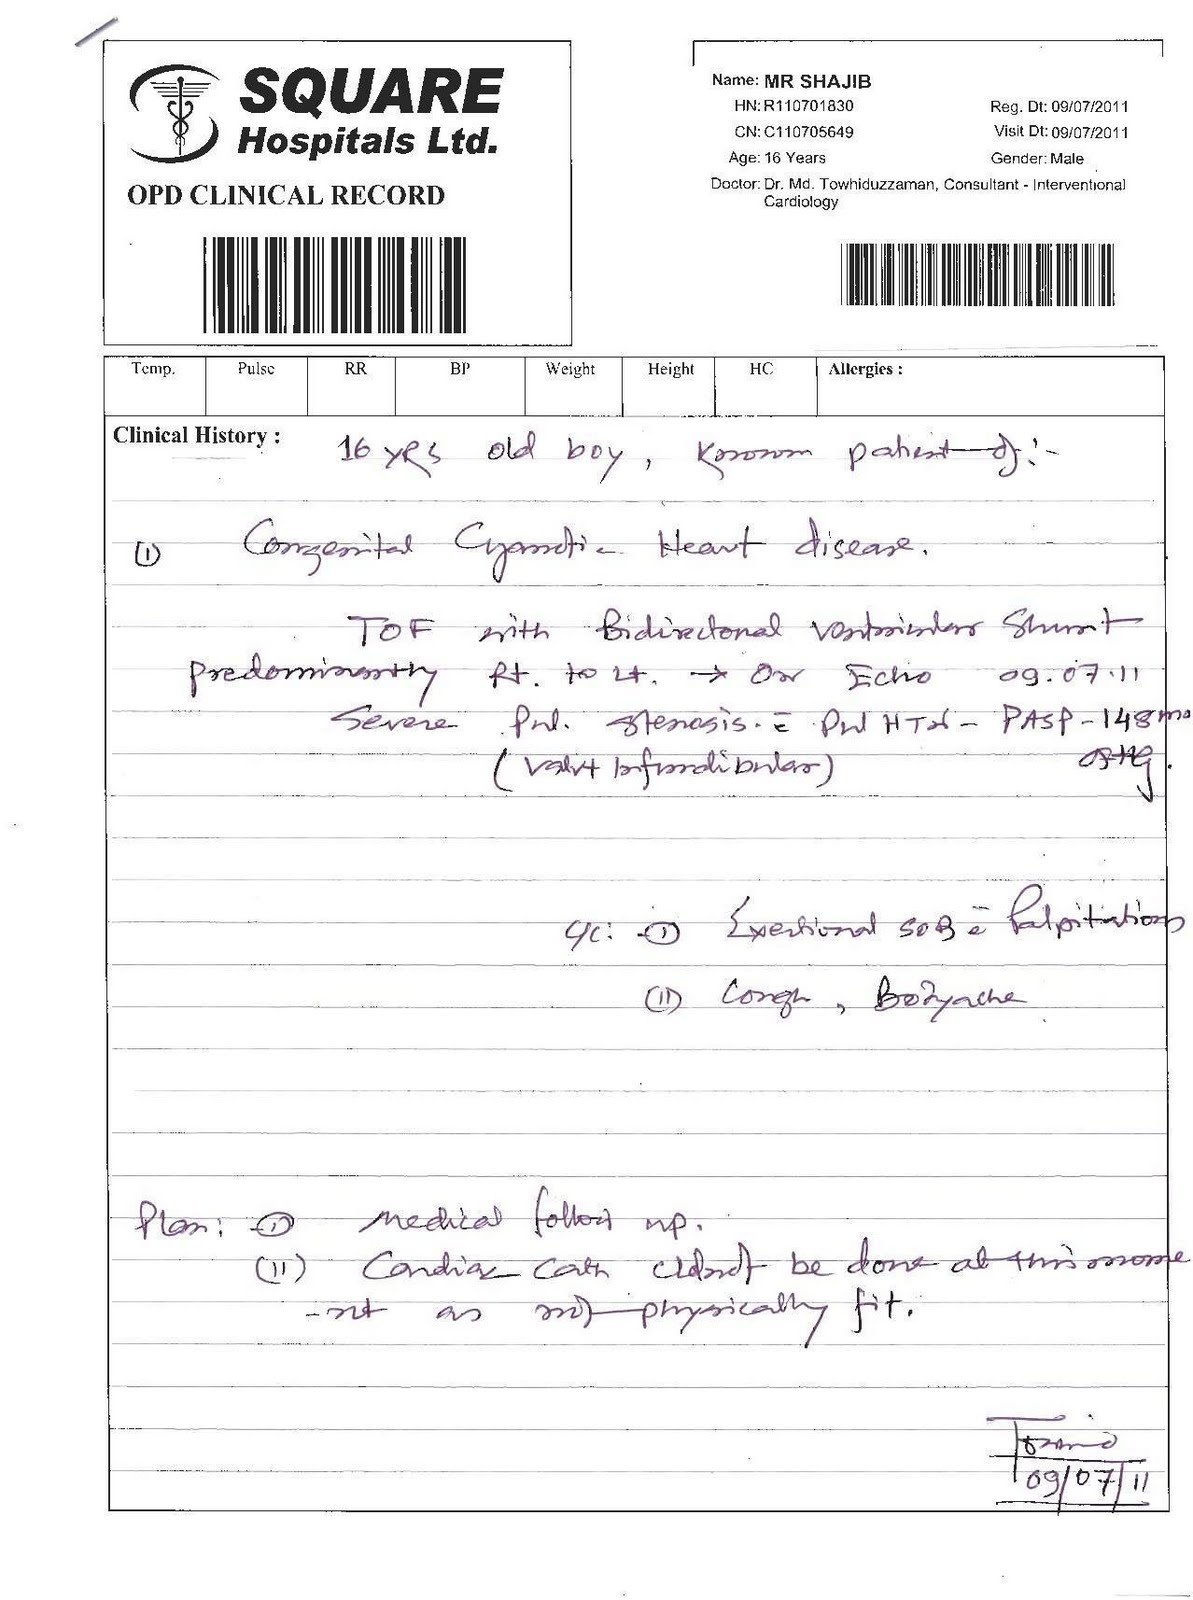 SQUARE
Hospitals Ltd.
OPD CLINICAL RECORD
Name: MR SHAJIB
HN: R110701830 Reg. Dt: 09/07/2011
CN: C110705649 Visit Dt: 09/07/2011
Age: 16 Years Gender: Male
Doctor: Dr. Md. Towhiduzzaman, Consultant - Interventional
Cardiology
Temp. Pulse RR BP Weight Height HC Allergies :
Clinical History : 16 yrs old boy, Known patient of:-
(I) Congenital Cyanotic Heart disease.
TOF with Bidirectonal ventricular Shunt
predominantly Rt. to Lt. → On Echo 09.07.11
Severe Pul. stenosis. c̄ Pul HTN - PASP - 148 mm
(Valv+ Infundibular) of Hg.
C/C: (I) Exertional SOB c̄ Palpitations
(II) Cough, Bodyache
Plan: (I) Medical follow up.
(II) Cardiac Cath cldnot be done at this mome
-nt as not physically fit.
09/07/11